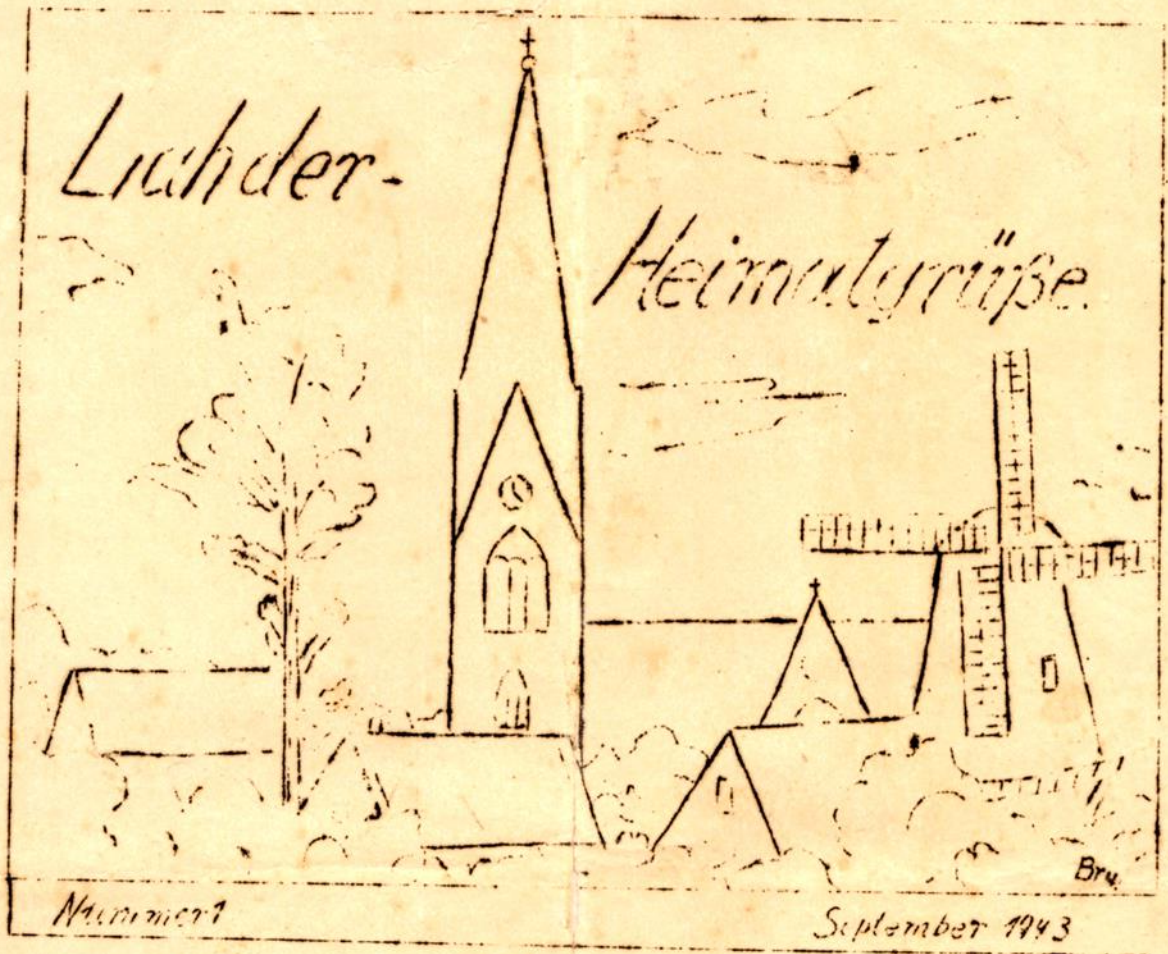 Lahder-
Heimatgrüße
Bru.
Nummer 1
September 1943